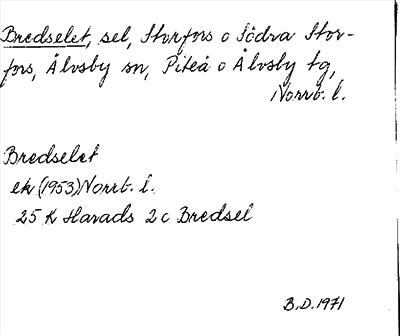 Bredselet, sel, Storfors o Södra Stor-
fors, Älvsby sn, Piteå o Älvsby tg,
Norrb. l.
Bredselet
ek (1953) Norrb. l.
25 K Harads 2 c Bredsel
B.D. 1971